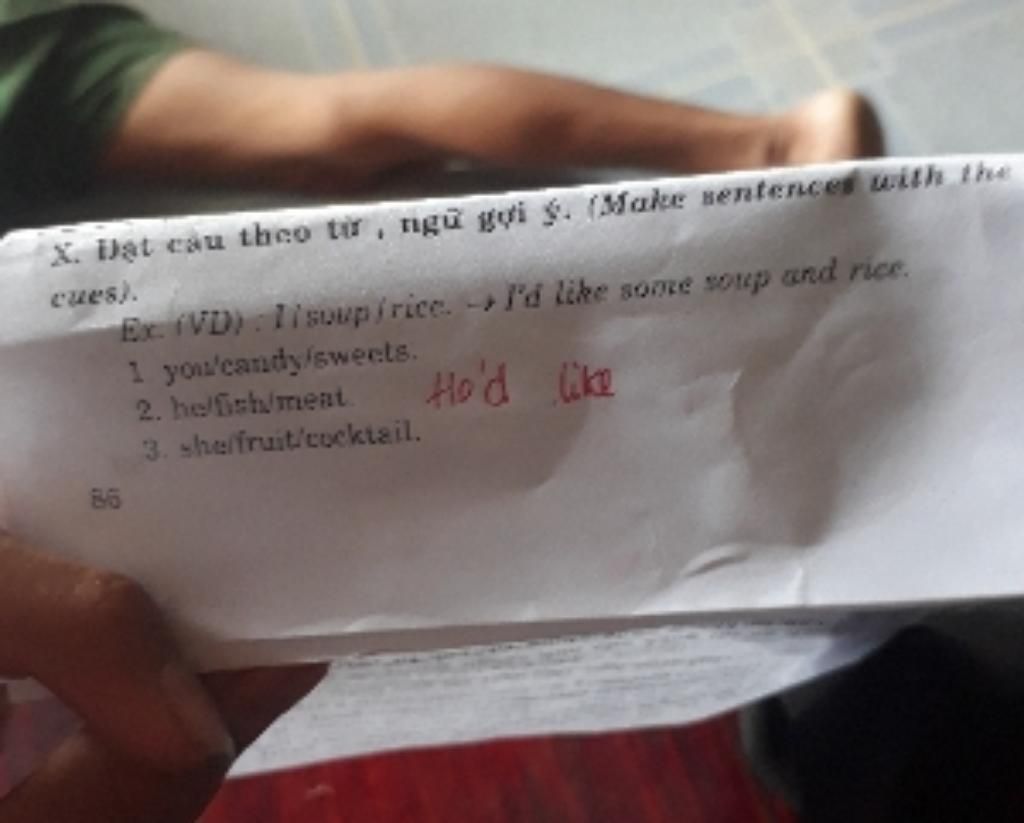 X. Đặt câu theo từ , ngữ gợi ý. (Make sentences with the
cues).
Ex. (VD) : I/soup/rice. → I'd like some soup and rice.
1 you/candy/sweets.
2. he/fish/meat. Ho'd like
3. she/fruit/cocktail.
86